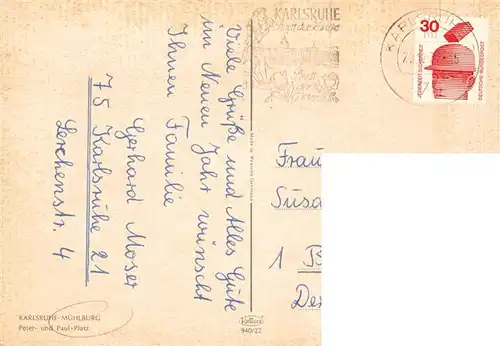 Viele Grüße und Alles Gute
im Neuen Jahr wünscht
Ihnen Familie
Gerhard Moser
75 Karlsruhe 21
Lerchenstr. 4
KARLSRUHE-MÜHLBURG
Peter- und Paul-Platz
Made in Western Germany
940/22
KARLSRUHE
KARLSRUHE
30
JEDERZEIT SICHERHEIT
DEUTSCHE BUNDESPOST
Frau
Susa
1 B
De